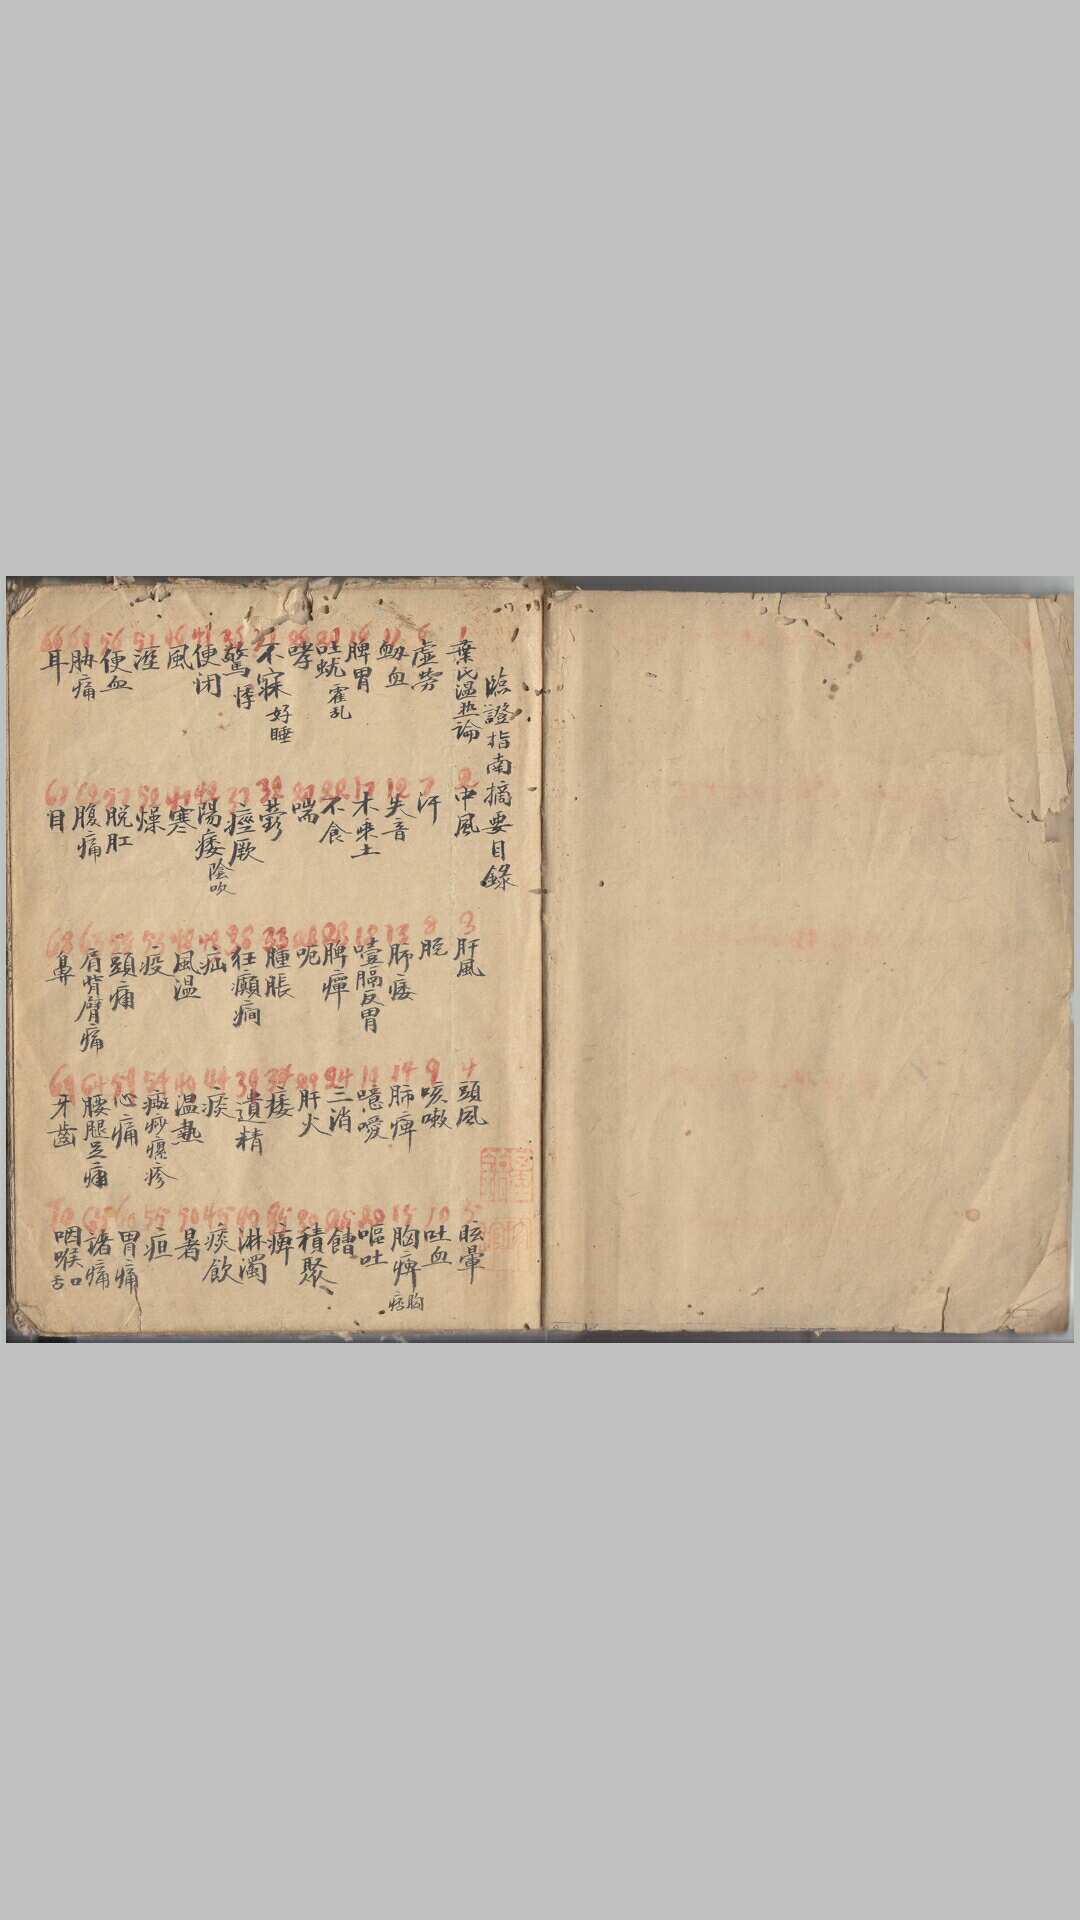 臨證指南摘要目錄
1 葉氏温热論
2 中風
3 肝風
4 頭風
5 眩暈
6 虛勞
7 汗
8 脱
9 咳嗽
10 吐血
11 衂血
12 失音
13 肺痿
14 肺痺
15 胸痺 胸痞
16 脾胃
17 木乘土
18 噎膈反胃
19 噫噯
20 嘔吐
21 吐蚘 霍乱
22 不食
23 脾癉
24 三消
25 饐
26 哮
27 喘
28 呃
29 肝火
30 積聚
31 不寐 好睡
32 鬱
33 腫脹
34 痿
35 痺
36 驚悸
37 痙厥
38 狂癲癇
39 遺精
40 淋濁
41 便闭
42 陽痿 陰吹
43 疝
44 痰
45 痰飲
46 風
47 寒
48 風温
49 温熱
50 暑
51 溼
52 燥
53 疫
54 癍痧瘰疹
55 疸
56 便血
57 脱肛
58 頭痛
59 心痛
60 胃痛
61 胁痛
62 腹痛
63 肩背臂痛
64 腰腿足痛
65 諸痛
66 耳
67 目
68 鼻
69 牙齒
70 咽喉 口舌